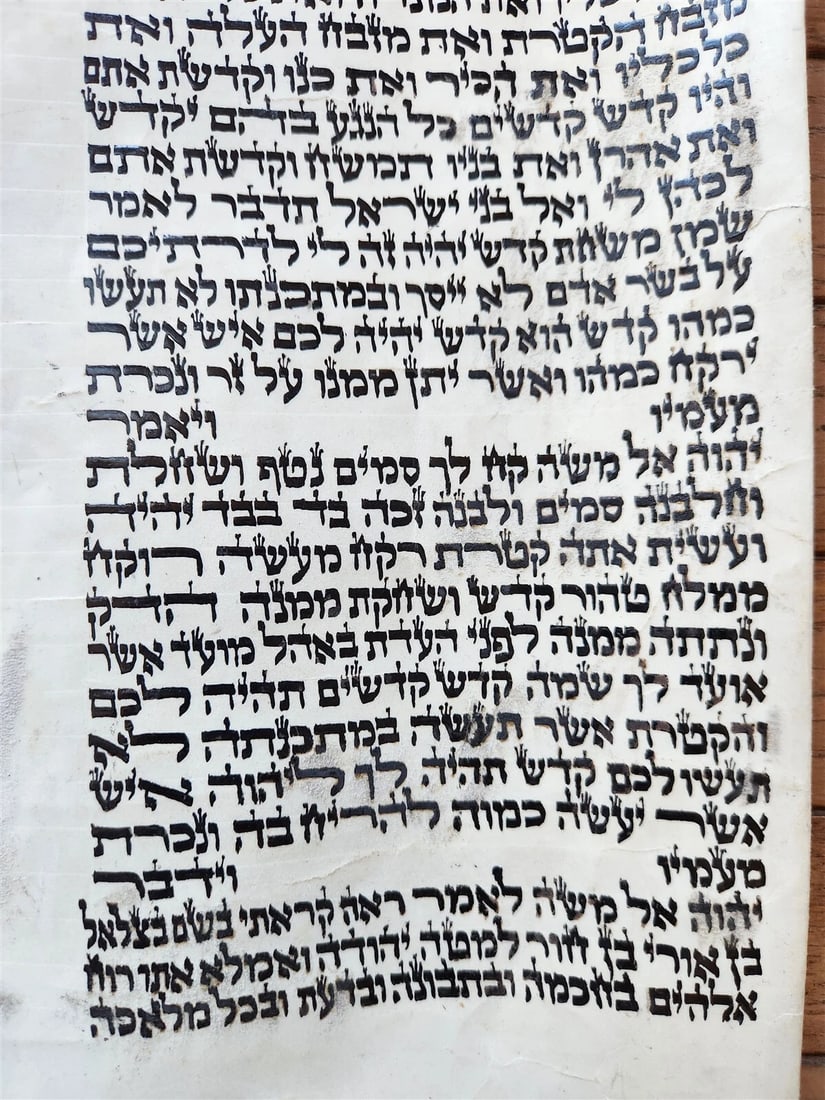 מזבח הקטרת ואת מזבח העלה ואת
כל כליו ואת הכיר ואת כנו וקדשת אתם
והיו קדש קדשים כל הנגע בהם יקדש
ואת אהרן ואת בניו תמשח וקדשת אתם
לכהן לי ואל בני ישראל תדבר לאמר
שמן משחת קדש יהיה זה לי לדרתיכם
על בשר אדם לא ייסך ובמתכנתו לא תעשו
כמהו קדש הוא קדש יהיה לכם איש אשר
ירקח כמהו ואשר יתן ממנו על זר ונכרת
מעמיו ויאמר
יהוה אל משה קח לך סמים נטף ושחלת
וחלבנה סמים ולבנה זכה בד בבד יהיה
ועשית אתה קטרת רקח מעשה רוקח
ממלח טהור קדש ושחקת ממנה הדק
ונתתה ממנה לפני העדת באהל מועד אשר
אועד לך שמה קדש קדשים תהיה לכם
והקטרת אשר תעשה במתכנתה לא
תעשו לכם קדש תהיה לך ליהוה איש
אשר יעשה כמוה להריח בה ונכרת
מעמיו וידבר
יהוה אל משה לאמר ראה קראתי בשם בצלאל
בן אורי בן חור למטה יהודה ואמלא אתו רוח
אלהים בחכמה ובתבונה ובדעת ובכל מלאכה